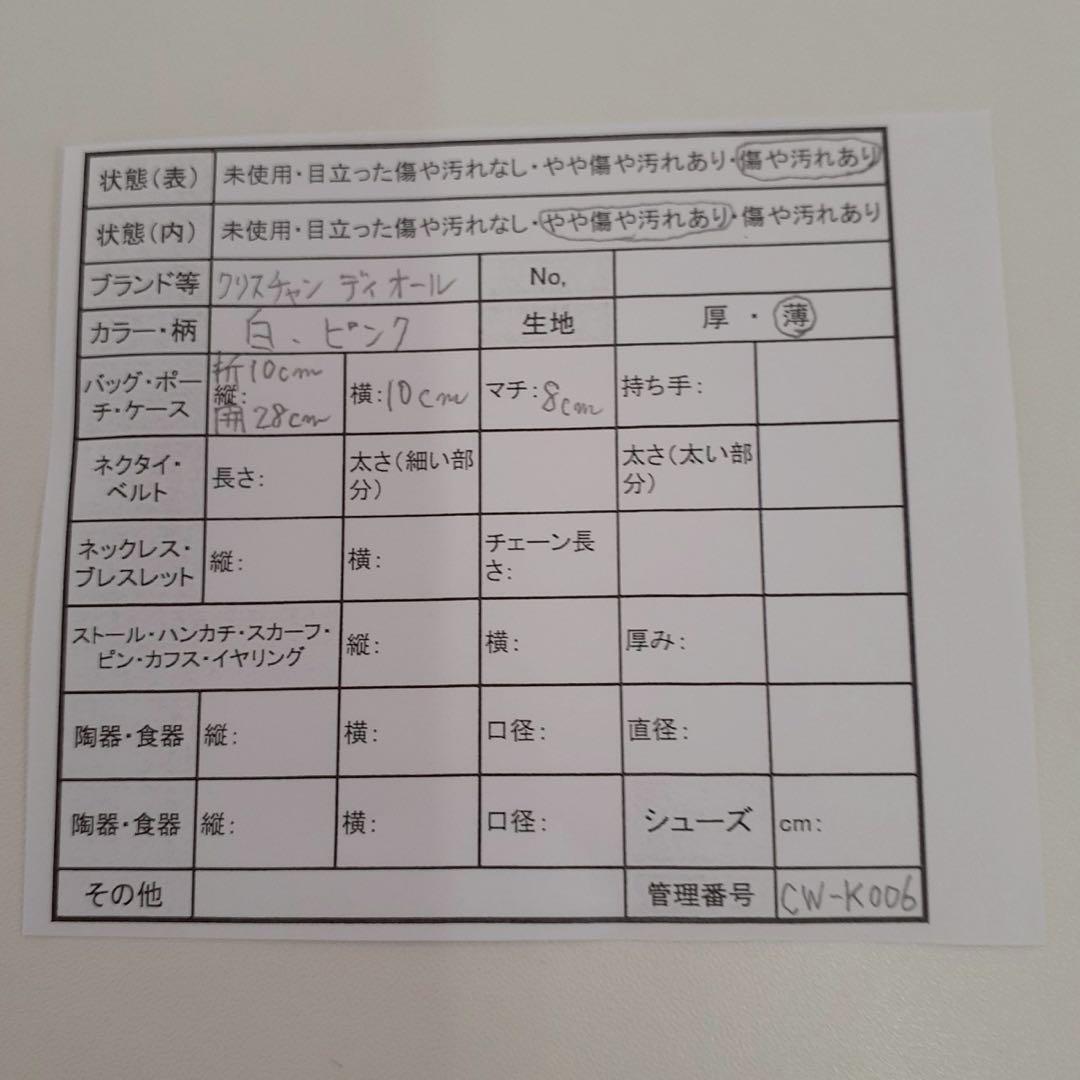 状態(表) 未使用・目立った傷や汚れなし・やや傷や汚れあり・傷や汚れあり
状態(内) 未使用・目立った傷や汚れなし・やや傷や汚れあり・傷や汚れあり
ブランド等 クリスチャン ディオール No,
カラー・柄 白、ピンク 生地 厚・薄
バッグ・ポーチ・ケース 折10cm 縦: 開28cm 横:10cm マチ:8cm 持ち手:
ネクタイ・ベルト 長さ: 太さ(細い部分) 太さ(太い部分)
ネックレス・ブレスレット 縦: 横: チェーン長さ:
ストール・ハンカチ・スカーフ・ピン・カフス・イヤリング 縦: 横: 厚み:
陶器・食器 縦: 横: 口径: 直径:
陶器・食器 縦: 横: 口径: シューズ cm:
その他 管理番号 CW-K006